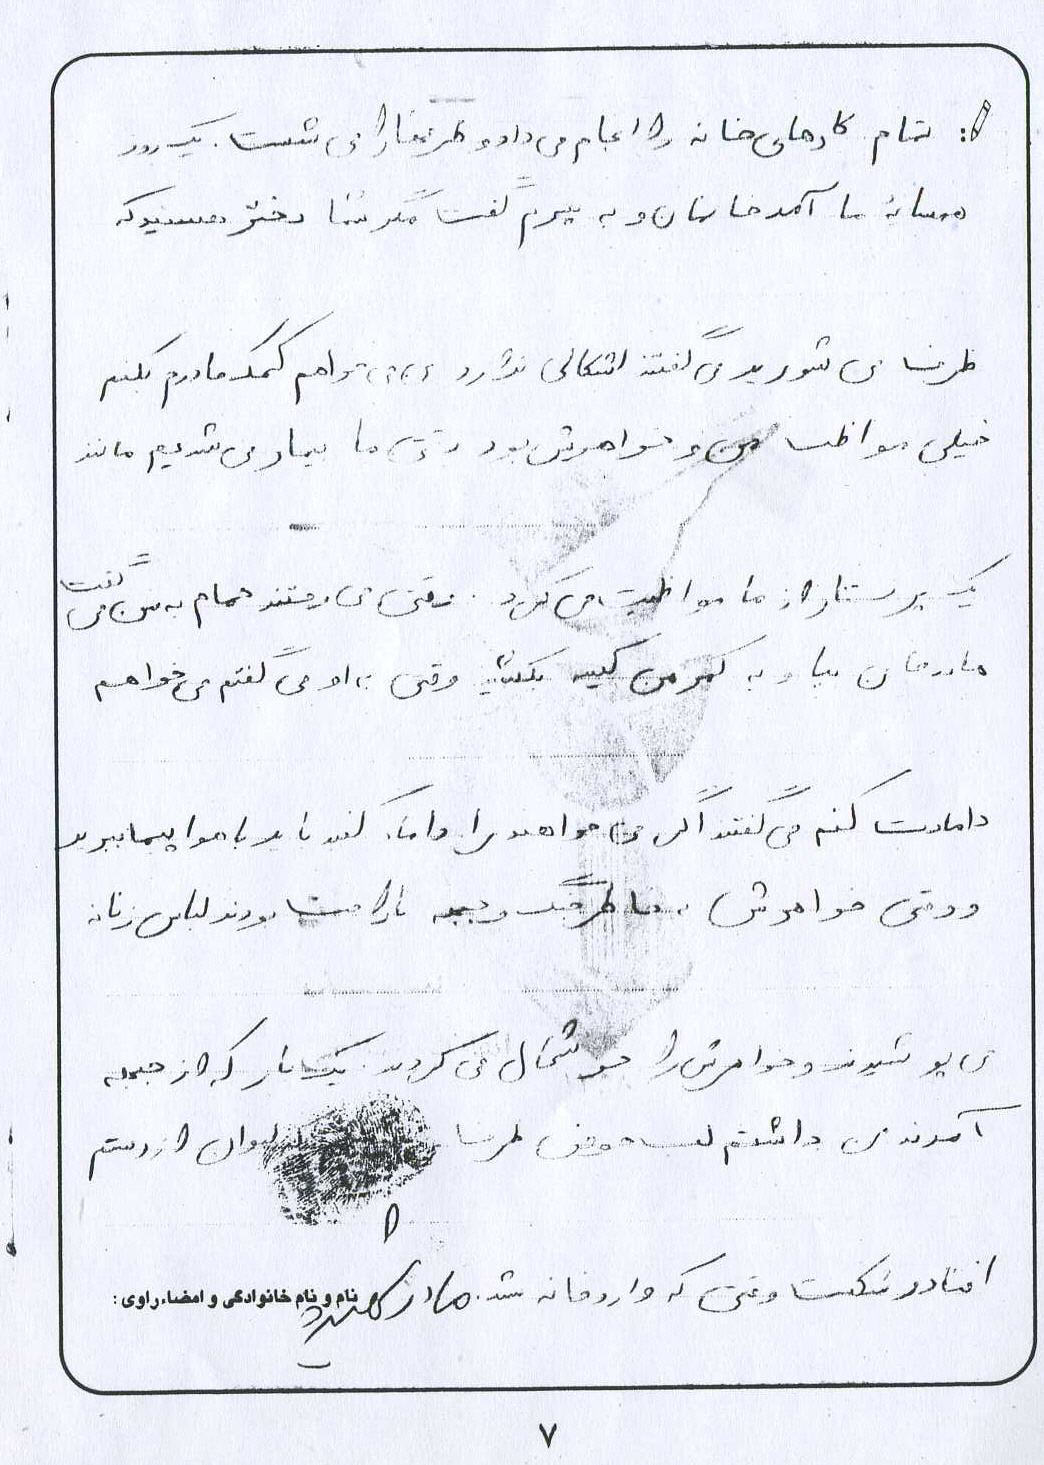 تمام کارهای خانه را انجام می داد و ظرفها را می شست. یک روز
همسایهٔ ما آمد خانمان و به پسرم گفت مگر شما دختر هستید که
ظرفها می شورید می گفتند اشکالی ندارد من می خواهم کمک مادرم بکنم
خیلی مواظب من و خواهرش بود وقتی ما بیمار می شدیم مانند
یک پرستار از ما مواظبت می کرد. وقتی می رفتند حمام به من می گفت
مادر جان بیا و به کمر من کیسه بکش وقتی به او می گفتم می خواهم
دامادت کنم می گفتند اگر می خواهید مرا داماد کنید باید با هواپیما ببرید
و وقتی خواهرش به خاطر جنگ و جبهه ناراحت بودند لباس زنانه
می پوشیدند و خواهرش را خوشحال می کردند. یک بار که از جبهه
آمدند من داشتم لب حوض ظرفها لیوان از دستم
افتاد و شکست وقتی که وارد خانه شد. مادر شهید
نام و نام خانوادگی و امضاء راوی:
۷